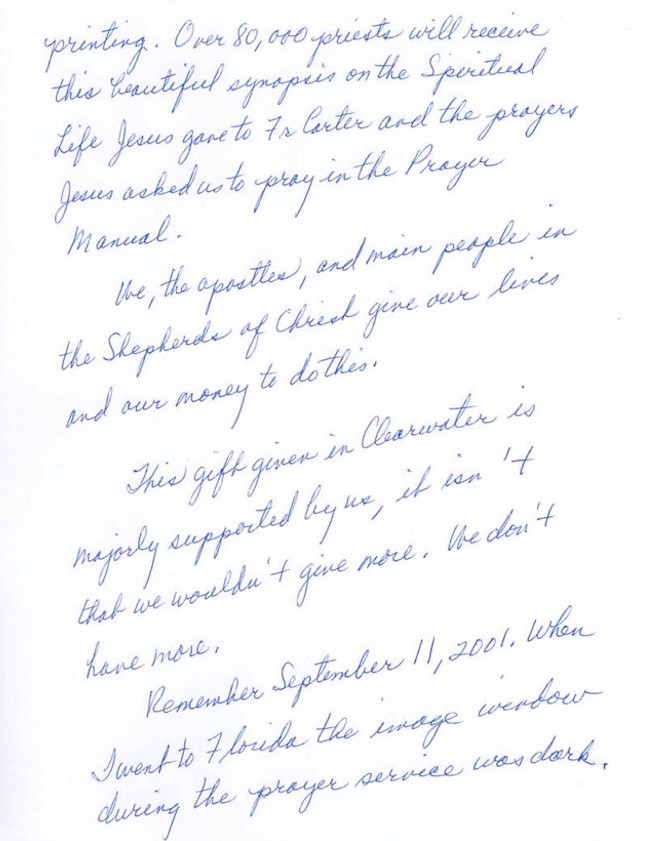 printing. Over 80,000 priests will receive
this beautiful synopsis on the Spiritual
Life Jesus gave to Fr Carter and the prayers
Jesus asked us to pray in the Prayer
Manual.
We, the apostles, and main people in
the Shepherds of Christ give our lives
and our money to do this.
This gift given in Clearwater is
majorly supported by us, it isn't
that we wouldn't give more. We don't
have more.
Remember September 11, 2001. When
I went to Florida the image window
during the prayer service was dark.